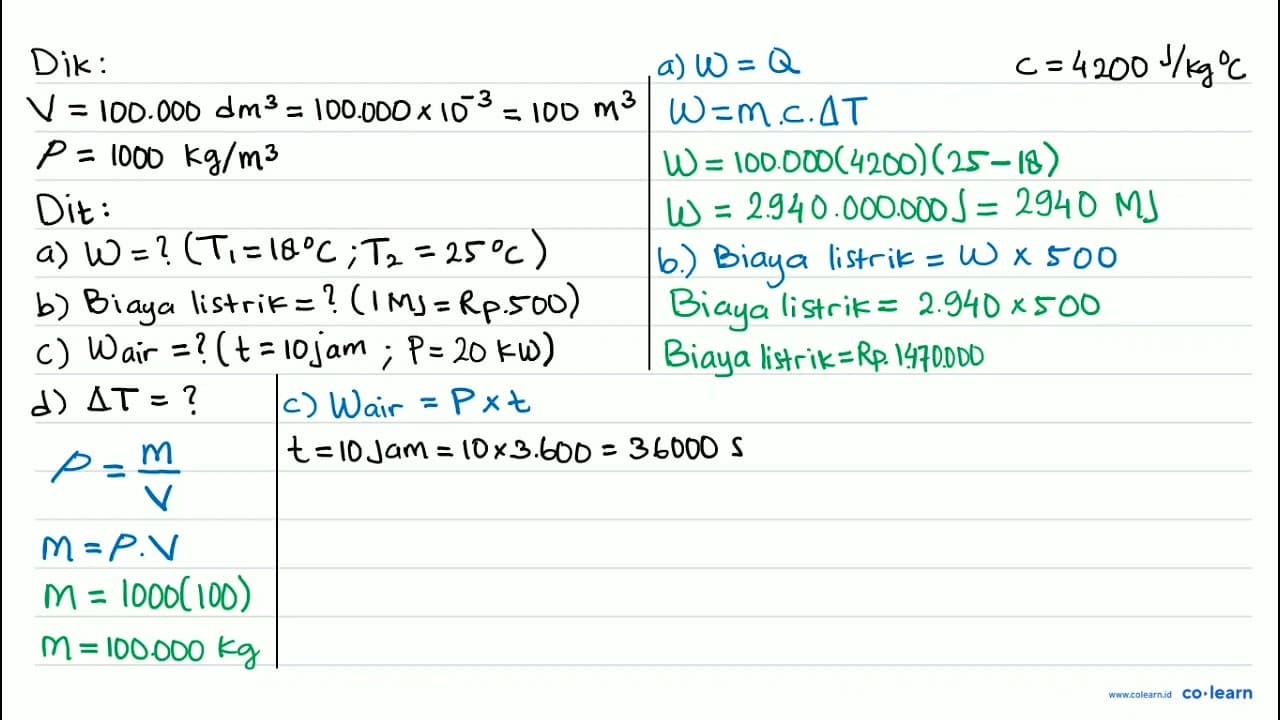 Dik:
V = 100.000 dm³ = 100.000 × 10⁻³ = 100 m³
ρ = 1000 kg/m³
Dit:
a) W = ? (T₁ = 18°C ; T₂ = 25°C)
b) Biaya listrik = ? (1 MJ = Rp.500)
c) Wair = ? (t = 10 jam ; P = 20 kW)
d) ΔT = ?
ρ = m/V
m = ρ.V
m = 1000(100)
m = 100.000 kg
a) W = Q
c = 4200 J/kg°C
W = m.c.ΔT
W = 100.000(4200)(25-18)
W = 2.940.000.000 J = 2940 MJ
b.) Biaya listrik = W × 500
Biaya listrik = 2.940 × 500
Biaya listrik = Rp. 1.470.000
c) Wair = P × t
t = 10 Jam = 10 × 3.600 = 36000 s
www.colearn.id co·learn